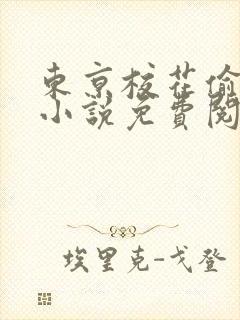 東京校花偷
小說免費閱
埃里克-戈登